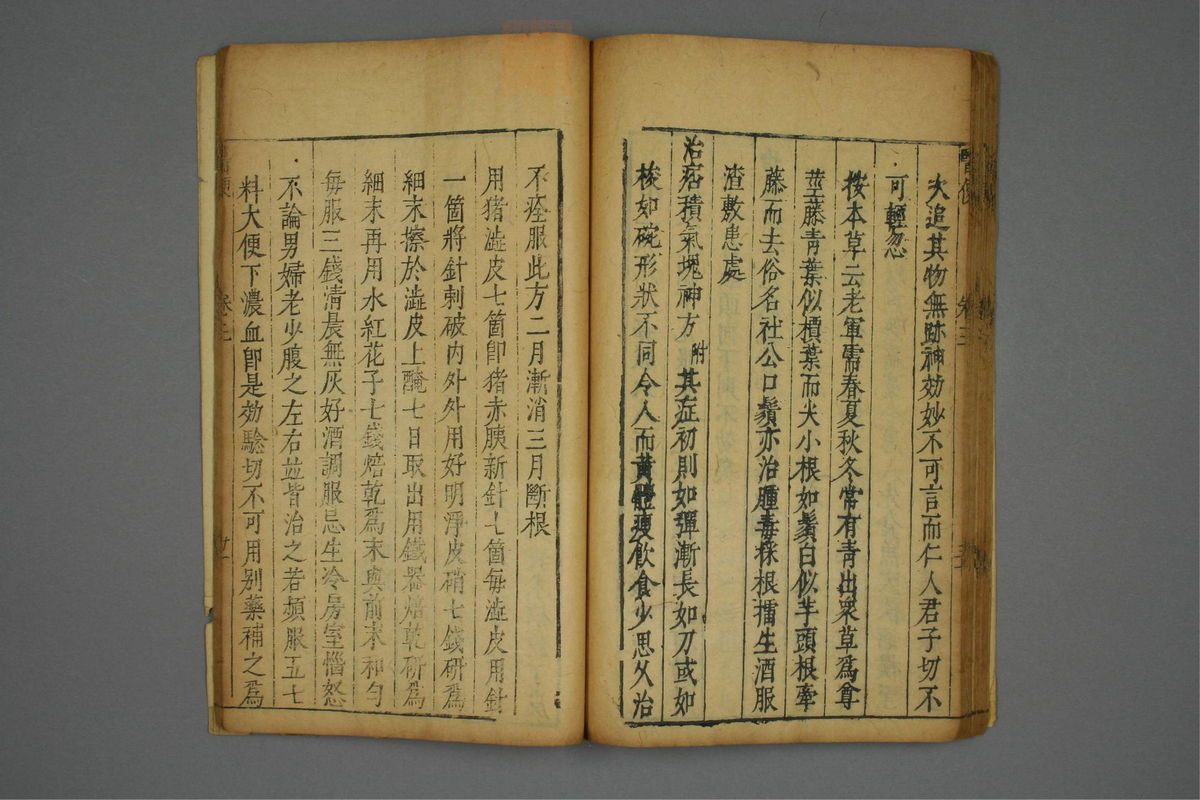 大追其物無跡神効妙不可言而仁人君子切不
可輕忽
按本草云老軍需春夏秋冬常有青出衆草爲尊
莖藤青葉似檟葉而大小根如鬚白似芋頭根牽
藤而去俗名社公口鬚亦治腫毒採根擂生酒服
渣敷患處
治痞積氣塊神方附其症初則如彈漸長如刀或如
梭如碗形狀不同令人面黃體瘦飲食少思久治
不痊服此方二月漸消三月斷根
用猪澁皮七箇即猪赤胰新針七箇每澁皮用針
一箇將針刺破内外外用好明淨皮硝七錢研爲
細末擦於澁皮上醃七日取出用鐵器焙乾研爲
細末再用水紅花子七錢焙乾爲末與前末和勻
每服三錢清晨無灰好酒調服忌生冷房室惱怒
不論男婦老少腹之左右並皆治之若頻服五七
料大便下濃血即是効驗切不可用别藥補之爲
卷三